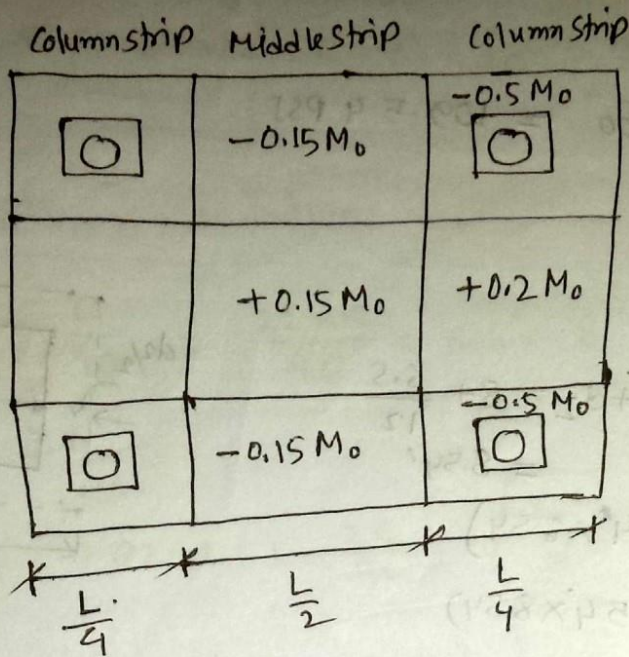 Column strip Middle Strip Column Strip
-0.15 M₀ -0.5 M₀
+0.15 M₀ +0.2 M₀
-0.15 M₀ -0.5 M₀
L/4 L/2 L/4